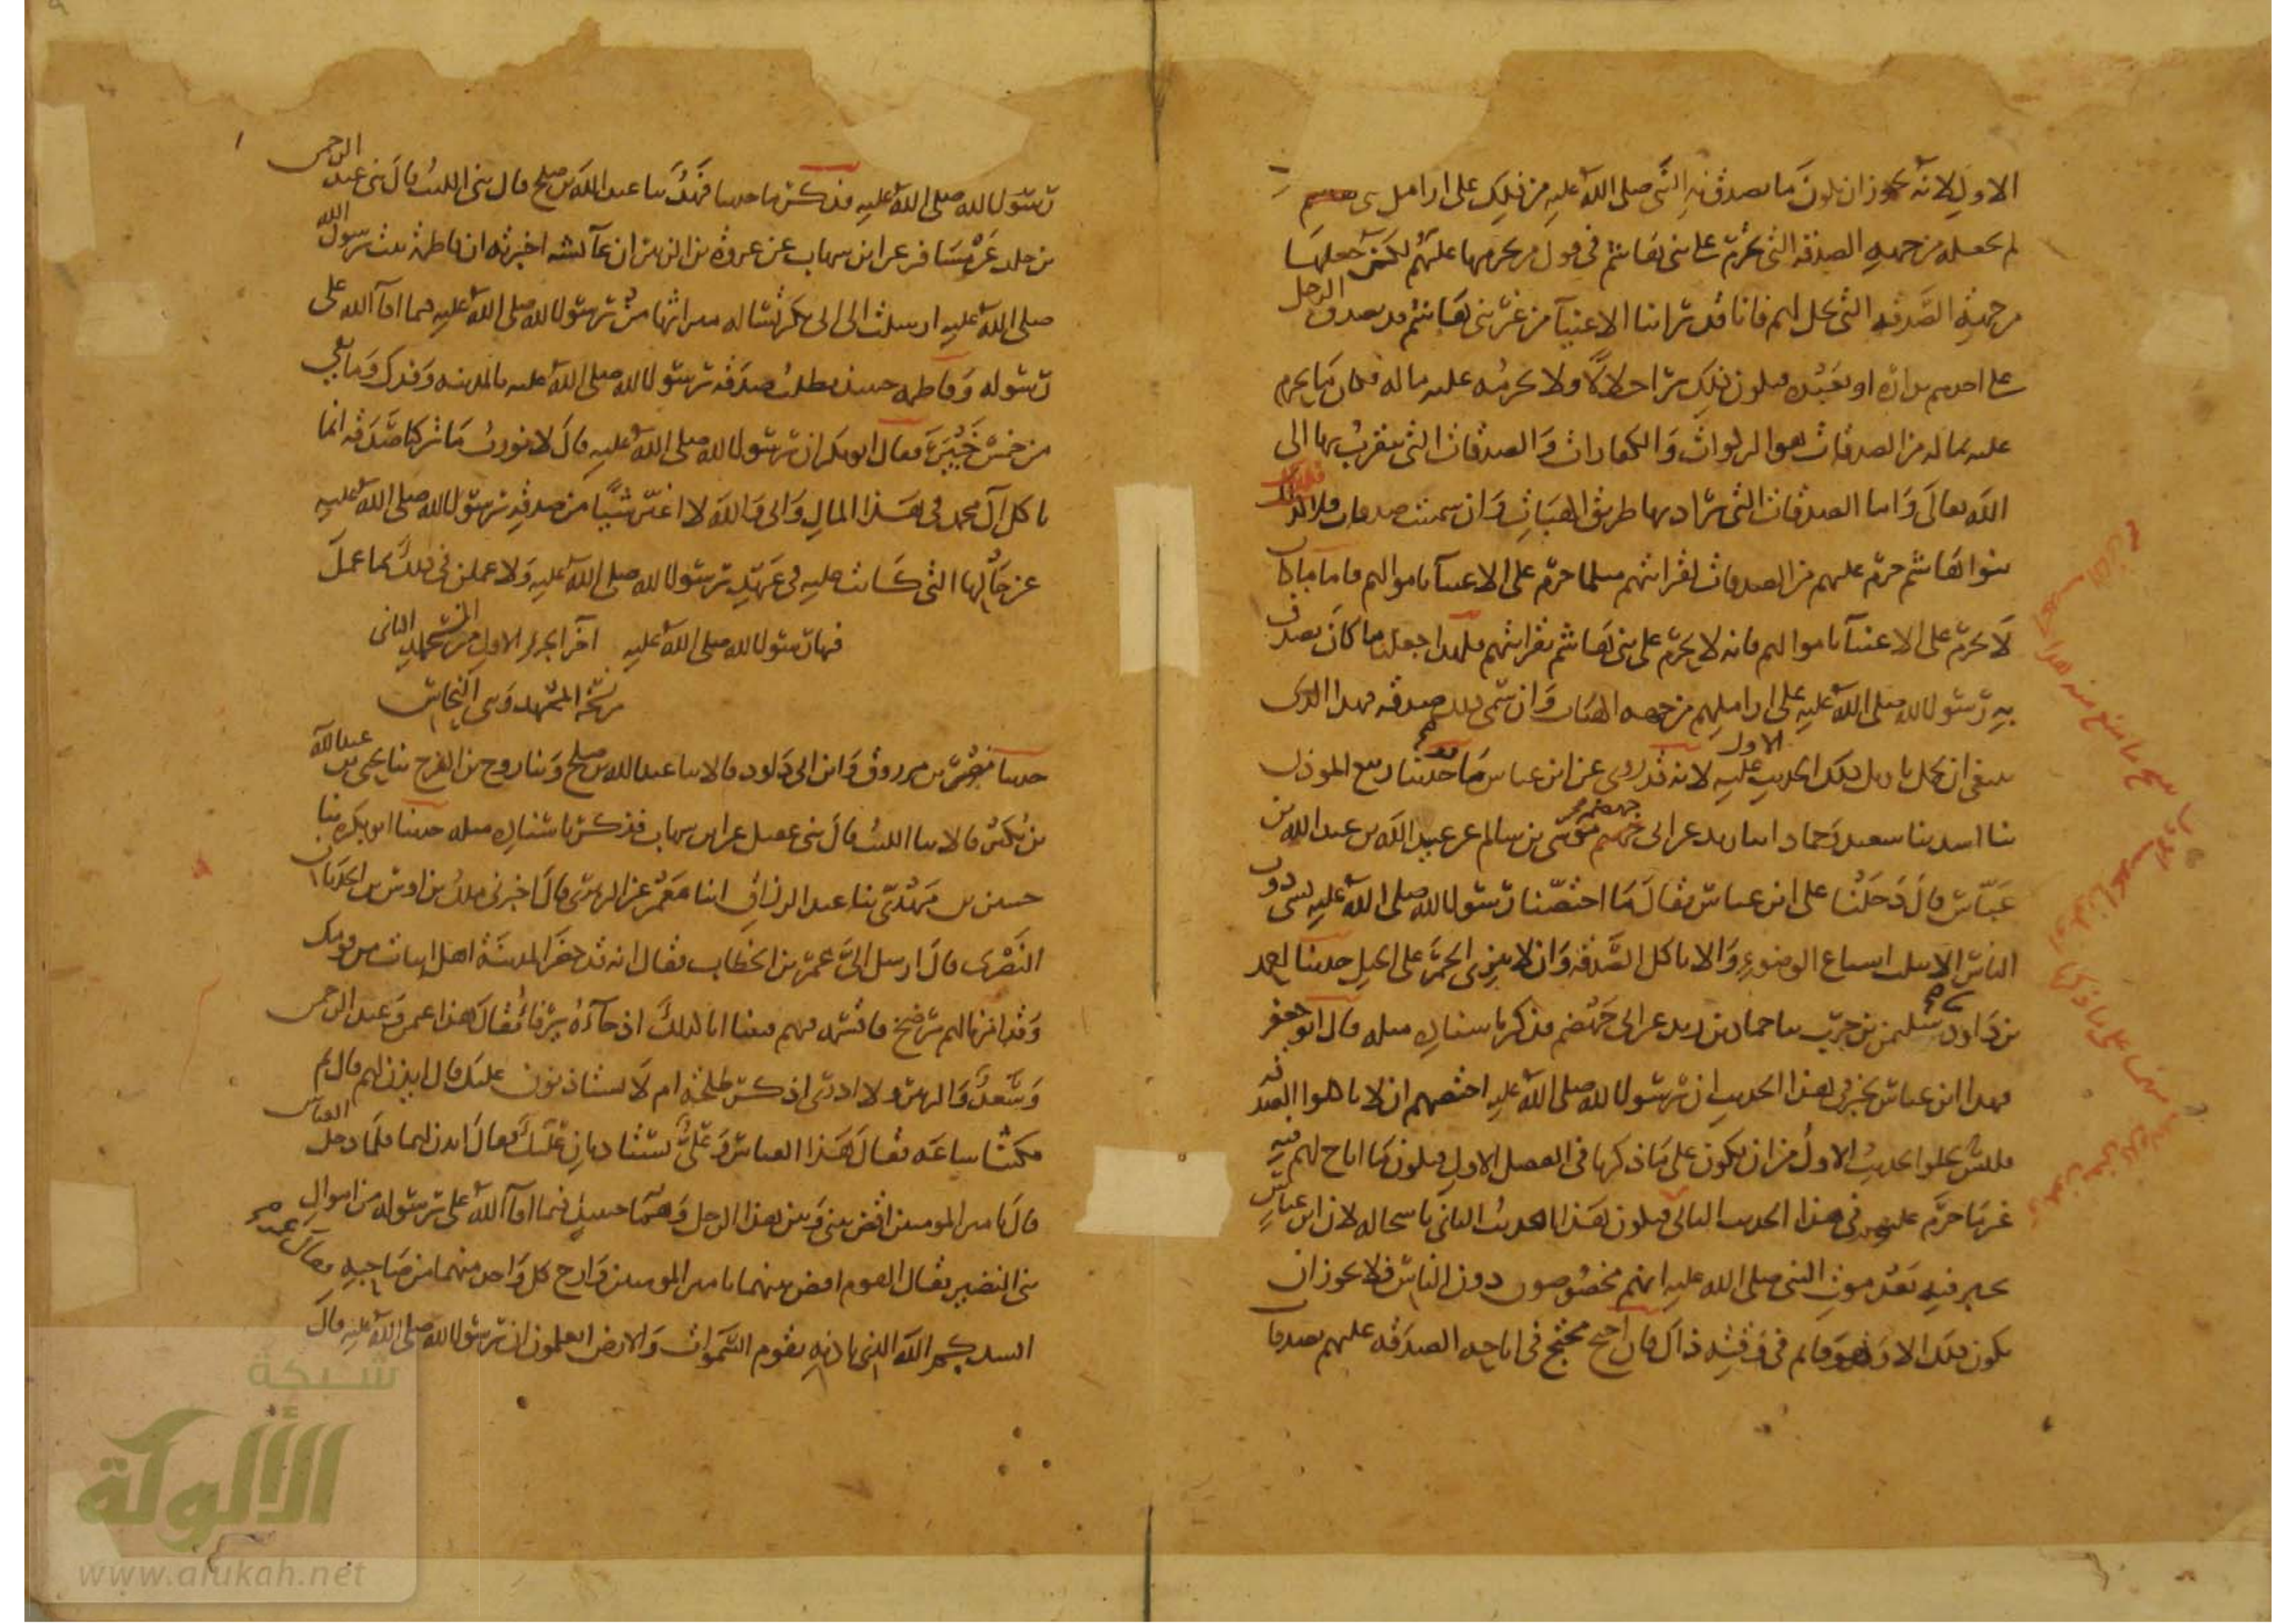 الاول لانه يجوز ان يكون ما تصدق به النبي صلى الله عليه من ذلك على ارامل بني هاشم
لم يجعله من جهة الصدقة التي تحرم على بني هاشم في قول من يحرمها عليهم لكن جعلها
من جهة الصدقة التي تحل لهم فانا قد راينا الاغنيآ من غير بني هاشم قد يصدق الرجل
على احدهم بداره او بعبده فيكون ذلك جائزا حلالا ولا يحرمه عليه ماله فكان ما يحرم
عليه بماله من الصدقات هو الزكوات والكفارات والصدقات التي يتقرب بها الى
الله تعالى واما الصدقات التي يراد بها طريق الهبات وان سميت صدقات فلا فكذلك
بنوا هاشم حرم عليهم من الصدقات لقرابتهم مثلما حرم على الاغنيآ باموالهم فاما ما كان
لا يحرم على الاغنيآ باموالهم فانه لا يحرم على بني هاشم بقرابتهم فلهذا جعلنا ما كان تصدق
به رسول الله صلى الله عليه على اراملهم من جهة الهبات وان سمى ذلك صدقة فهذا الذي
ينبغي ان يحمل تاويل ذلك الحديث الاول عليه لانه قد روي عن ابن عباس ما قد حدثنا ربيع المؤذن
ثنا اسد ثنا سعيد وحماد ابنا زيد عن ابي جهضم موسى بن سالم عن عبيد الله بن عبد الله بن
عباس قال دخلنا على ابن عباس فقال ما اختصنا رسول الله صلى الله عليه بشي دون
الناس الا بثلث اسباغ الوضوء والا ناكل الصدقة وان لا ننزي الحمر على الخيل حدثنا احمد
بن داود ثنا سليمن بن حرب ثنا حماد بن زيد عن ابي جهضم فذكر باسناده مثله قال ابو جعفر
فهذا ابن عباس يخبر في هذا الحديث ان رسول الله صلى الله عليه اختصهم ان لا ياكلوا الصدقة
فليس يخلوا الحديث الاول من ان يكون على ما ذكرنا في الفصل الاول فيكون ما اباح لهم فيه
غير ما حرم عليهم في هذا الحديث الثاني فيكون هذا الحديث الثاني ناسخا له لان ابن عباس
يخبر فيه بعد موت النبي صلى الله عليه انهم مخصوصون دون الناس فلا يجوز ان
يكون ذلك الا وهو قائم في وقته ذاك فان احتج محتج في اباحة الصدقة عليهم بصدقات
رسول الله صلى الله عليه فذكر ما حدثنا فهد ثنا عبد الله بن صلح قال ثني الليث قال ثني عبد الرحمن
بن خالد عن مسافر عن ابن شهاب عن عروة بن الزبير ان عآئشة اخبرته ان فاطمة بنت رسول الله
صلى الله عليه ارسلت الى ابي بكر تساله ميراثها من رسول الله صلى الله عليه مما افآ الله على
رسوله وفاطمة حينئذ تطلب صدقة رسول الله صلى الله عليه بالمدينة وفدك وما بقي
من خمس خيبر فقال ابو بكر ان رسول الله صلى الله عليه قال لا نورث ما تركنا صدقة انما
ياكل آل محمد في هذا المال واني والله لا اغير شيئا من صدقة رسول الله صلى الله عليه
عن حالها التي كانت عليه في عهد رسول الله صلى الله عليه ولاعملن في ذلك بما عمل
فيها رسول الله صلى الله عليه اخر الجزء الاول من المجلد الثاني
حدثنا نصر بن مرزوق وابن ابي داود قالا ثنا عبد الله بن صلح وثنا روح بن الفرج ثنا يحيى بن عبد الله
بن بكير قالا ثنا الليث قال ثني عقيل عن ابن شهاب فذكر باسناده مثله حدثنا ابو بكرة ثنا
حسين بن مهدي ثنا عبد الرزاق انا معمر عن الزهري قال اخبرني ملك بن اوس بن الحدثان
النصري قال ارسل الي عمر بن الخطاب فقال انه قد حضر المدينة اهل ابيات من قومك
وقد امرنا لهم برضخ فاقسمه فيهم فبينا انا كذلك اذ جآءه يرفا فقال هذا عمر وعبد الرحمن
وسعد والزبير ولا ادري اذكر طلحة ام لا يستاذنون عليك قال ايذن لهم قال ثم
مكثنا ساعة فقال هذا العباس وعلي يستاذنان عليك فقال ايذن لهما فلما دخل العباس
قال يا امير المومنين اقض بيني وبين هذا الرجل وهما حينئذ فيما افآ الله على رسوله من اموال
بني النضير فقال القوم اقض بينهما يا امير المومنين وارح كل واحد منهما من صاحبه فقال عمر
انشدكم الله الذي باذنه تقوم السموات والارض اتعلمون ان رسول الله صلى الله عليه قال
شبكة
الألوكة
www.alukah.net